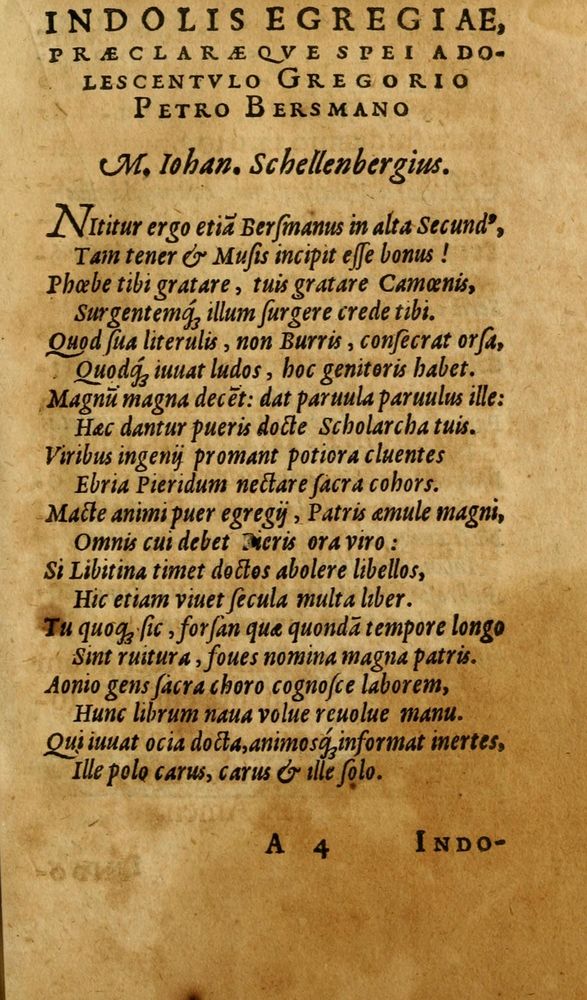 INDOLIS EGREGIAE,
PRÆCLARÆQVE SPEI ADO-
LESCENTVLO GREGORIO
PETRO BERSMANO
M. Iohan. Schellenbergius.
NItitur ergo etiā Berſmanus in alta Secund⁹,
Tam tener & Muſis incipit eſſe bonus!
Phœbe tibi gratare, tuis gratare Camœnis,
Surgentemq́ꝫ illum ſurgere crede tibi.
Quod ſua literulis, non Burris, conſecrat orſa,
Quodq́ꝫ iuuat ludos, hoc genitoris habet.
Magnū magna decēt: dat paruula paruulus ille:
Hæc dantur pueris docte Scholarcha tuis.
Viribus ingenij promant potiora cluentes
Ebria Pieridum nectare ſacra cohors.
Macte animi puer egregij, Patris æmule magni,
Omnis cui debet Pieris ora viro:
Si Libitina timet doctos abolere libellos,
Hic etiam viuet ſecula multa liber.
Tu quoq́ꝫ ſic, forſan quæ quondā tempore longo
Sint ruitura, foues nomina magna patris.
Aonio gens ſacra choro cognoſce laborem,
Hunc librum naua volue reuolue manu.
Qui iuuat ocia docta, animosq́ꝫ informat inertes,
Ille polo carus, carus & ille ſolo.
A 4 INDO-